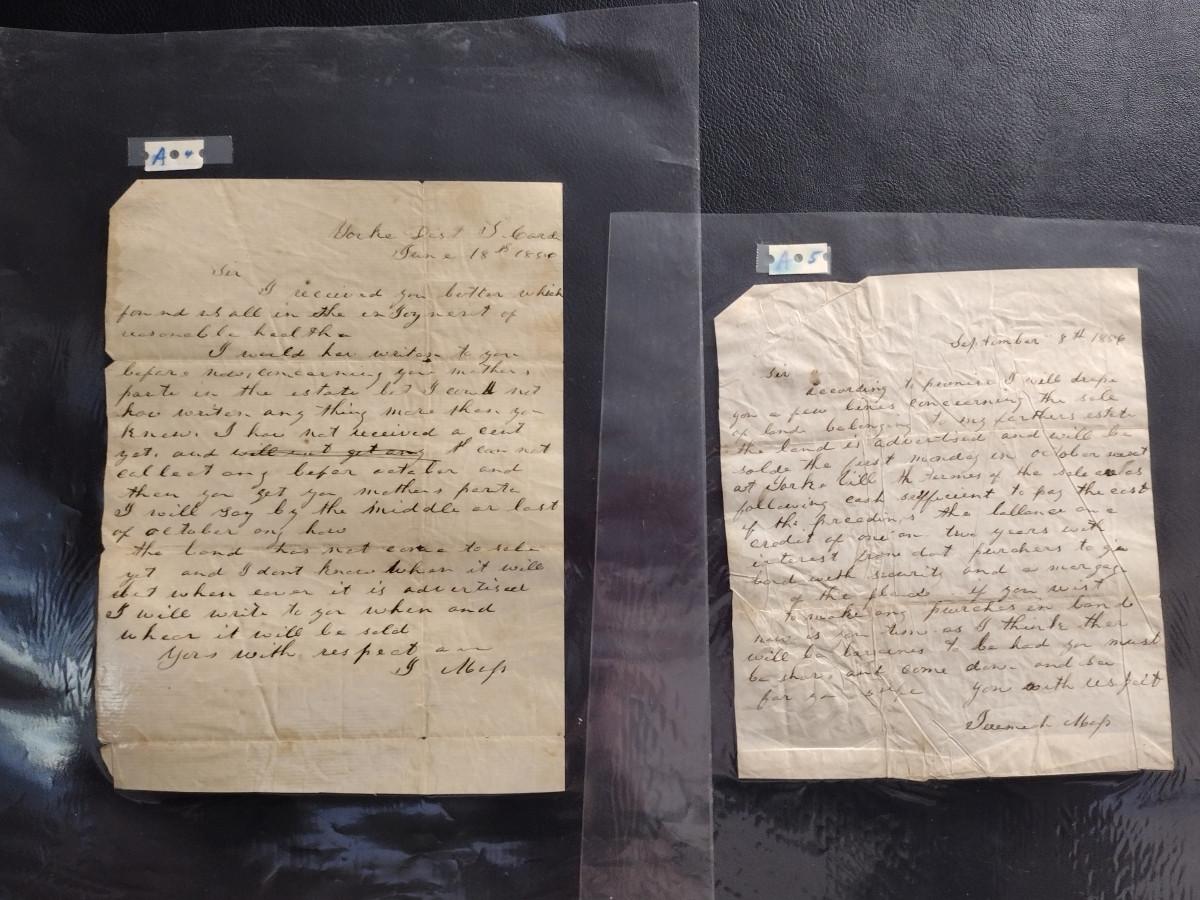 A 4
Yorke Dist S. Caro
June 18th 185
Sir
I received you letter which
found us all in the inJoyment of
reasonable healthe
I would hav writen to you
before now, concerning you mothers
parte in the estate but I could not
hav writen any thing more then you
knew. I hav not received a cent
yet. and will not get any I can not
collect any befor october and
then you get you mothers parte
I will say by the middle or last
of october any how
the land has not come to sale
yet and I dont know when it will
but when ever it is advertised
I will write to you when and
whear it will be sold
Yors with respect
J Moss
A 5
September 8th 1856
Sir
According to promise I will drope
you a few lines concerning the sale
of lands belonging to my farthers estate
the land is advertised and will be
solde the first monday in october next
at Yorke vill the termes of the sale as
following cash sufficient to pay the cost
of the the ballance on a
credit of one an two years with
interest from dat purchers to giv
bond with security and a morgage
of the if you wist
to make any purches in land
now is you tim as I think ther
will be bargines to be had you must
be shure and come down and see
for you you with respect
Moss